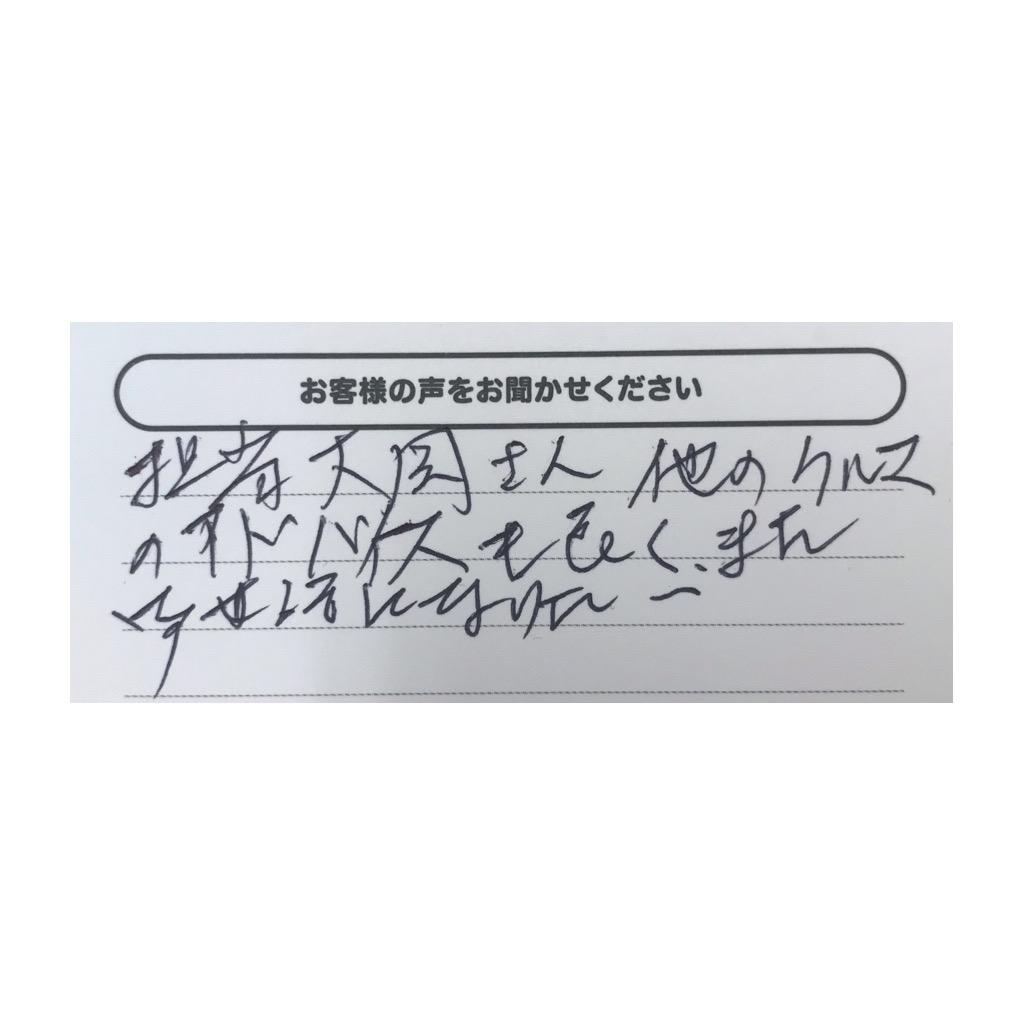 お客様の声をお聞かせください
担当者大岡さん 他のクルマ
のアドバイスも良く、また
お世話になりたい